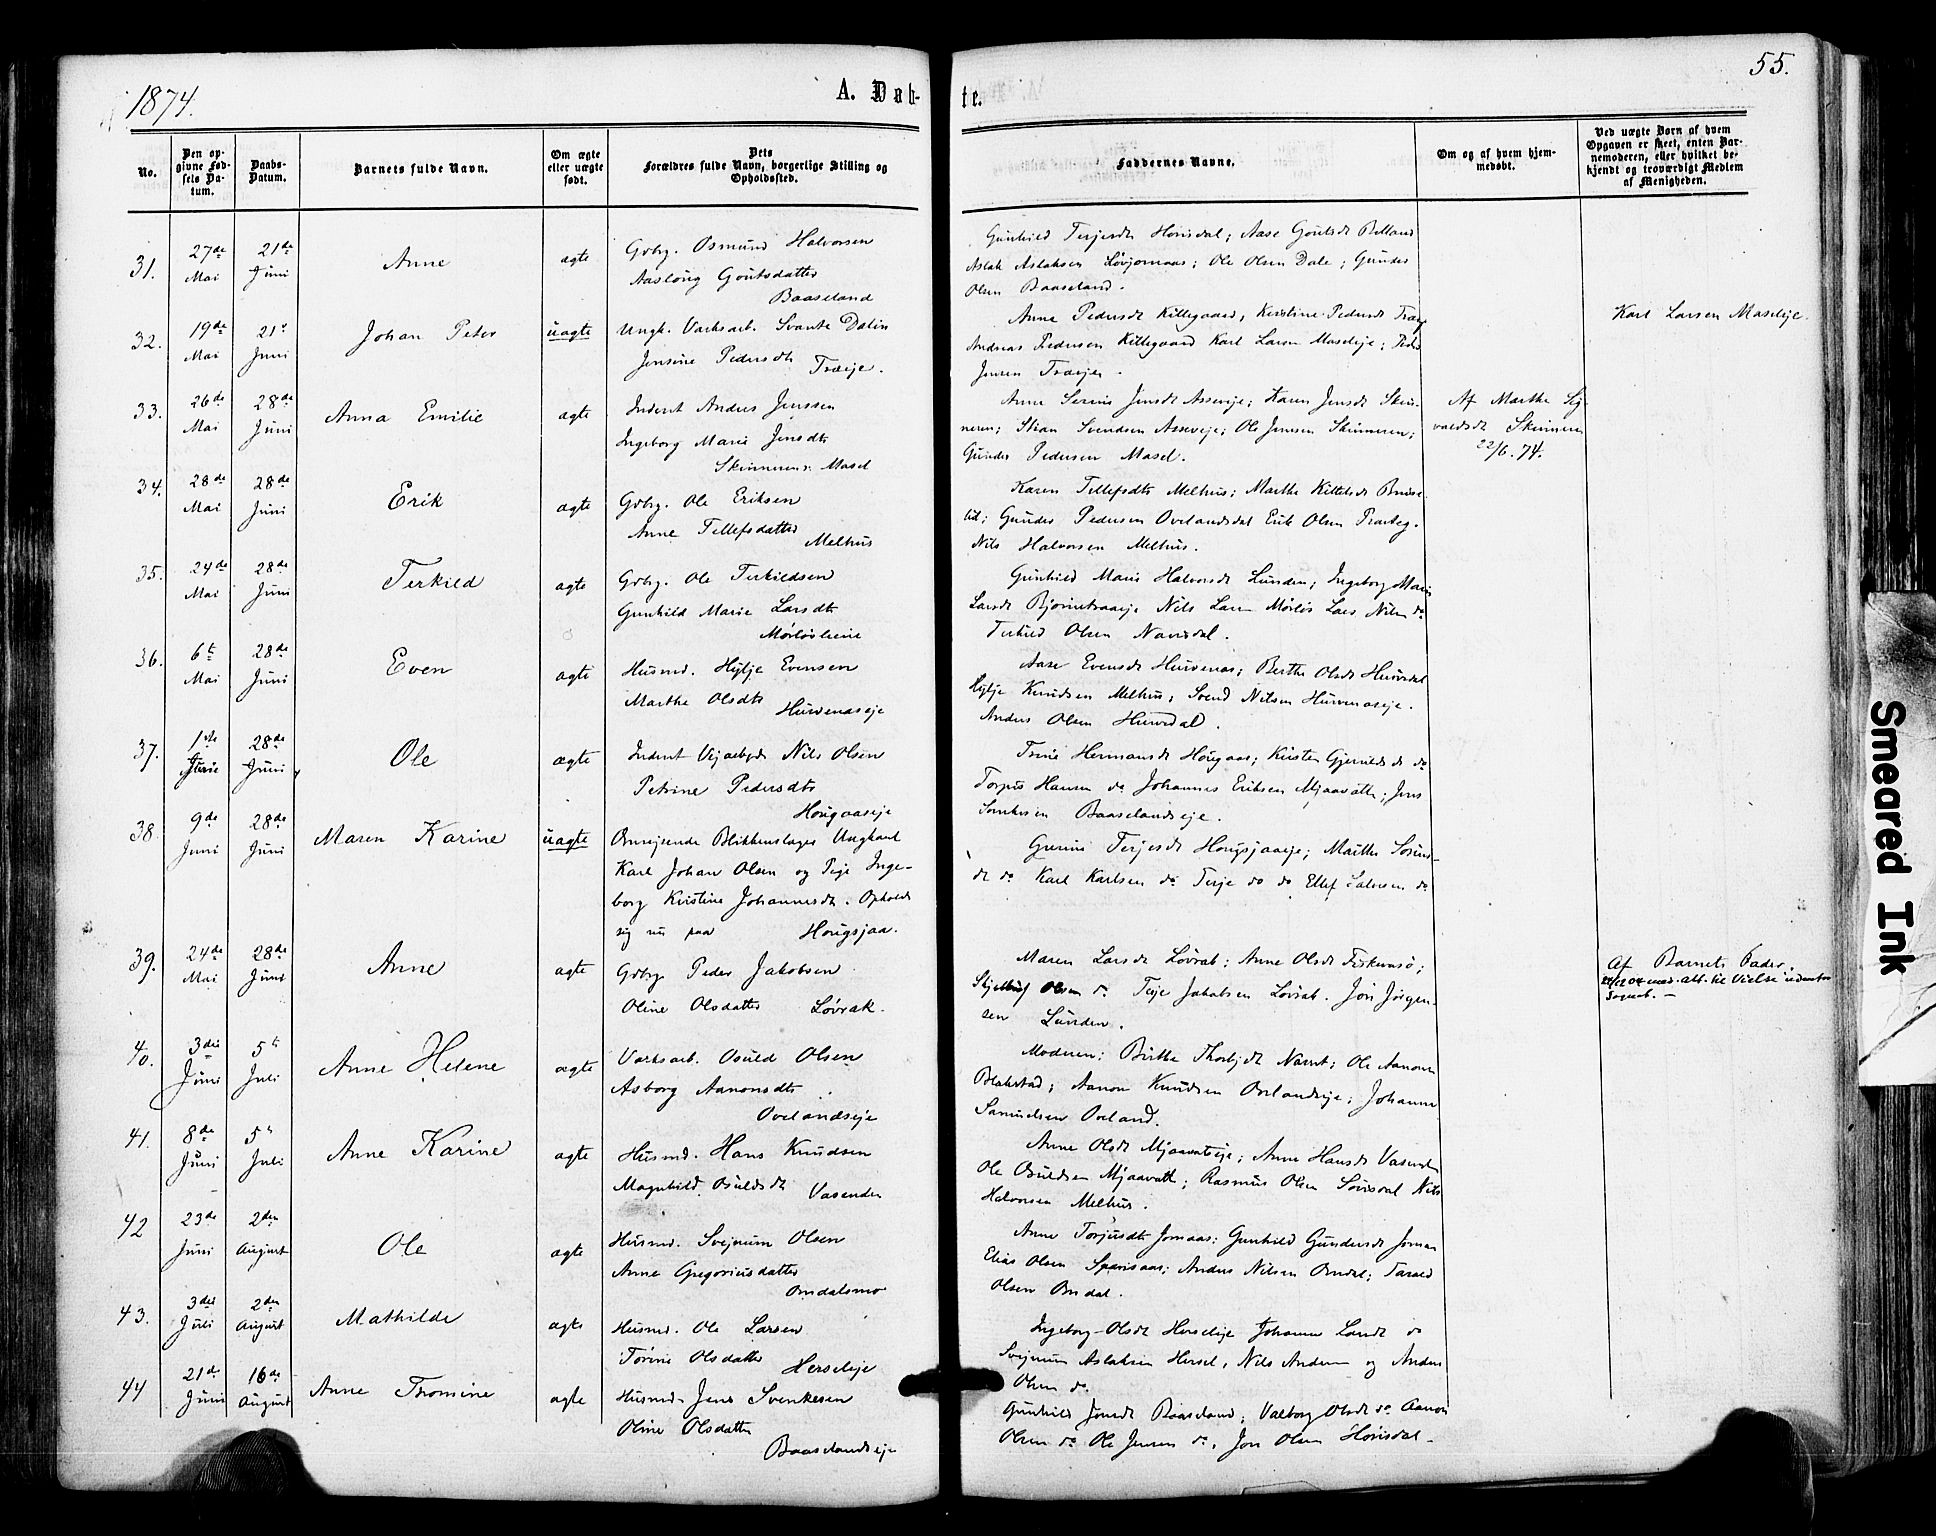 1874.
A. Døb-
te.
55.
No.
Den op-
givne Fød-
sels Da-
tum.
Daabs-
Datum.
Barnets fulde Navn.
Om ægte
eller uægte
født.
Dets
Forældres fulde Navn, borgerlige Stilling og
Opholdssted.
Faddernes Navne.
Om og af hvem hjem-
medøbt.
Ved uægte Børn af hvem
Opgaven er skeet, enten Bar-
nemoderen, eller hvilket be-
kjendt og troværdigt Medlem
af Menigheden.
31.
27de
Mai
21de
Juni
Anne
ægte
Gdbg. Osmund Halvorsen
Aasloug Goutsdatter
Baaseland
Gunhild Terjesdt Hovisdal; Aase Goutsdt
Aslak Aslaksen Løvjomaas; Ole Olsen Dale; Gunder
Olsen Baaseland.
32.
19de
Mai
21
Juni
Johan Peter
uægte
Ungk. Værksarb. Svante Dalin
Jensine Pedersdt
Træeje.
Anne Pedersdt Kittegaard, Kirstine Pedersdt
Andreas Pedersen Kittegaard Karl Larsen Maseleje; Peder
Jensen Træejen.
Karl Larsen Maseleje.
33.
26de
Mai
28de
Juni
Anna Emilie
ægte
Inderst Anders Jenssen
Ingeborg Marie Jensdt
Skinneren Masel
Anne Serine Jensdt Asseveje; Karen Jensdt Skin-
neren; Svendsen Asseveje; Ole Jensen Skinneren;
Gunder Pedersen Masel.
Af Marthe Sig
valdsdt Skinneren
22/6.74.
34.
28de
Mai
28de
Juni
Erik
ægte
Gdbg. Ole Eriksen
Anne Tellefsdatter
Melhus
Karen Tellefsdt Melhus; Marthe Kittelsdt
lid; Gunder Pedersen Ovelandsdal Erik Olsen
Nils Halvorsen Melhus.
35.
24de
Mai
28de
Juni
Terkild
ægte
Gdbg. Ole Terkildsen
Gunhild Marie Larsdt
Gunhild Marie Halvorsdt Lunden; Ingeborg Marie
Larsdt Nils Larsen Lars Nilsen do
Terkild Olsen Navisdal.
36.
6t
Mai
28de
Juni
Even
ægte
Husmd. Hylje Evensen
Marthe Olsdt
Hurvenaseje
Aase Evensdt Hurvenas; Berthe Olsdt
Hylje Knudsen Melhus; Svend Nilsen Hurvenaseje.
Anders Olsen
37.
1ste
Juni
28de
Juni
Ole
ægte
Inderst Nils Olsen
Petrine Pedersdt
Hougaaseje
Trine Hermansdt Hougaas; Kirsten do
Hansen do Johannes Eriksen Mjaavatn; Jens
Baaselandseje.
38.
9de
Juni
28de
Juni
Maren Karine
uægte
Omrejsende Blikkenslager Ungkarl
Karl Johan Olsen og Pige Inge-
borg Kristine Johannesdt. Opholdt
sig nu paa
Hougsjaa.
Terjesdt Hougsjaaeje; Marthe
dt do Karl Karlsen do Terje do do Ellef do
39.
24de
Mai
28de
Juni
Anne
ægte
Gdbg. Peder Jakobsen
Oline Olsdatter
Løvrak.
Maren Larsdt Løvrak; Anne Olsdt
Olsen do Terje Jakobsen Løvrak. Jørgen-
sen Lunden.
Af Barnets Fader.
att. til Vielse udenfor
Sognet.
40.
3die
Juni
5t
Juli
Anne Helene
ægte
Værksarb. Osuld Olsen
Asborg Aanonsdt
Ovelandseje
Moderen; Birthe Ole Aanonsen
Blakstad; Aanon Knudsen Ovelandseje; Johanne
Samuelsen Oveland.
41.
8de
Juni
5t
Juli
Anne Karine
ægte
Husmd. Hans Knudsen
Magnhild Osuldsdt
Vasenden
Anne Olsdt Mjaavatseje; Anne Hansdt Vasenden
Ole Osuldsen Mjaavatn; Rasmus Olsen Nils
Halvorsen Melhus.
42
23de
Juni
2den
August
Ole
ægte
Husmd. Svejnum Olsen
Anne Gregoriusdatter
Omdalsmo
Anne Torjusdt Jomaas; Gunhild Gundersdt Jomaas
Elias Olsen Anders Nilsen Omdal; Tarald
Olsen Omdal.
43.
3die
Juli
2den
August
Mathilde
ægte
Husmd. Ole Larsen
Torine Olsdatter
Herseleje
Ingeborg Olsdt Herseleje Johanne Larsdt do
Svejnum Aslaksen Hersel, Nils Andersen og Anders
Olsen do.
44
21de
Juni
16de
August
Anne Thomine
ægte
Husmd. Jens Svenkesen
Oline Olsdatter
Baaselandseje
Gunhild Jensdt Baaseland; Valborg Olsdt do Aanon
Olsen do Ole Jensen do, Jon Olsen Hovisdal.
Smeared Ink